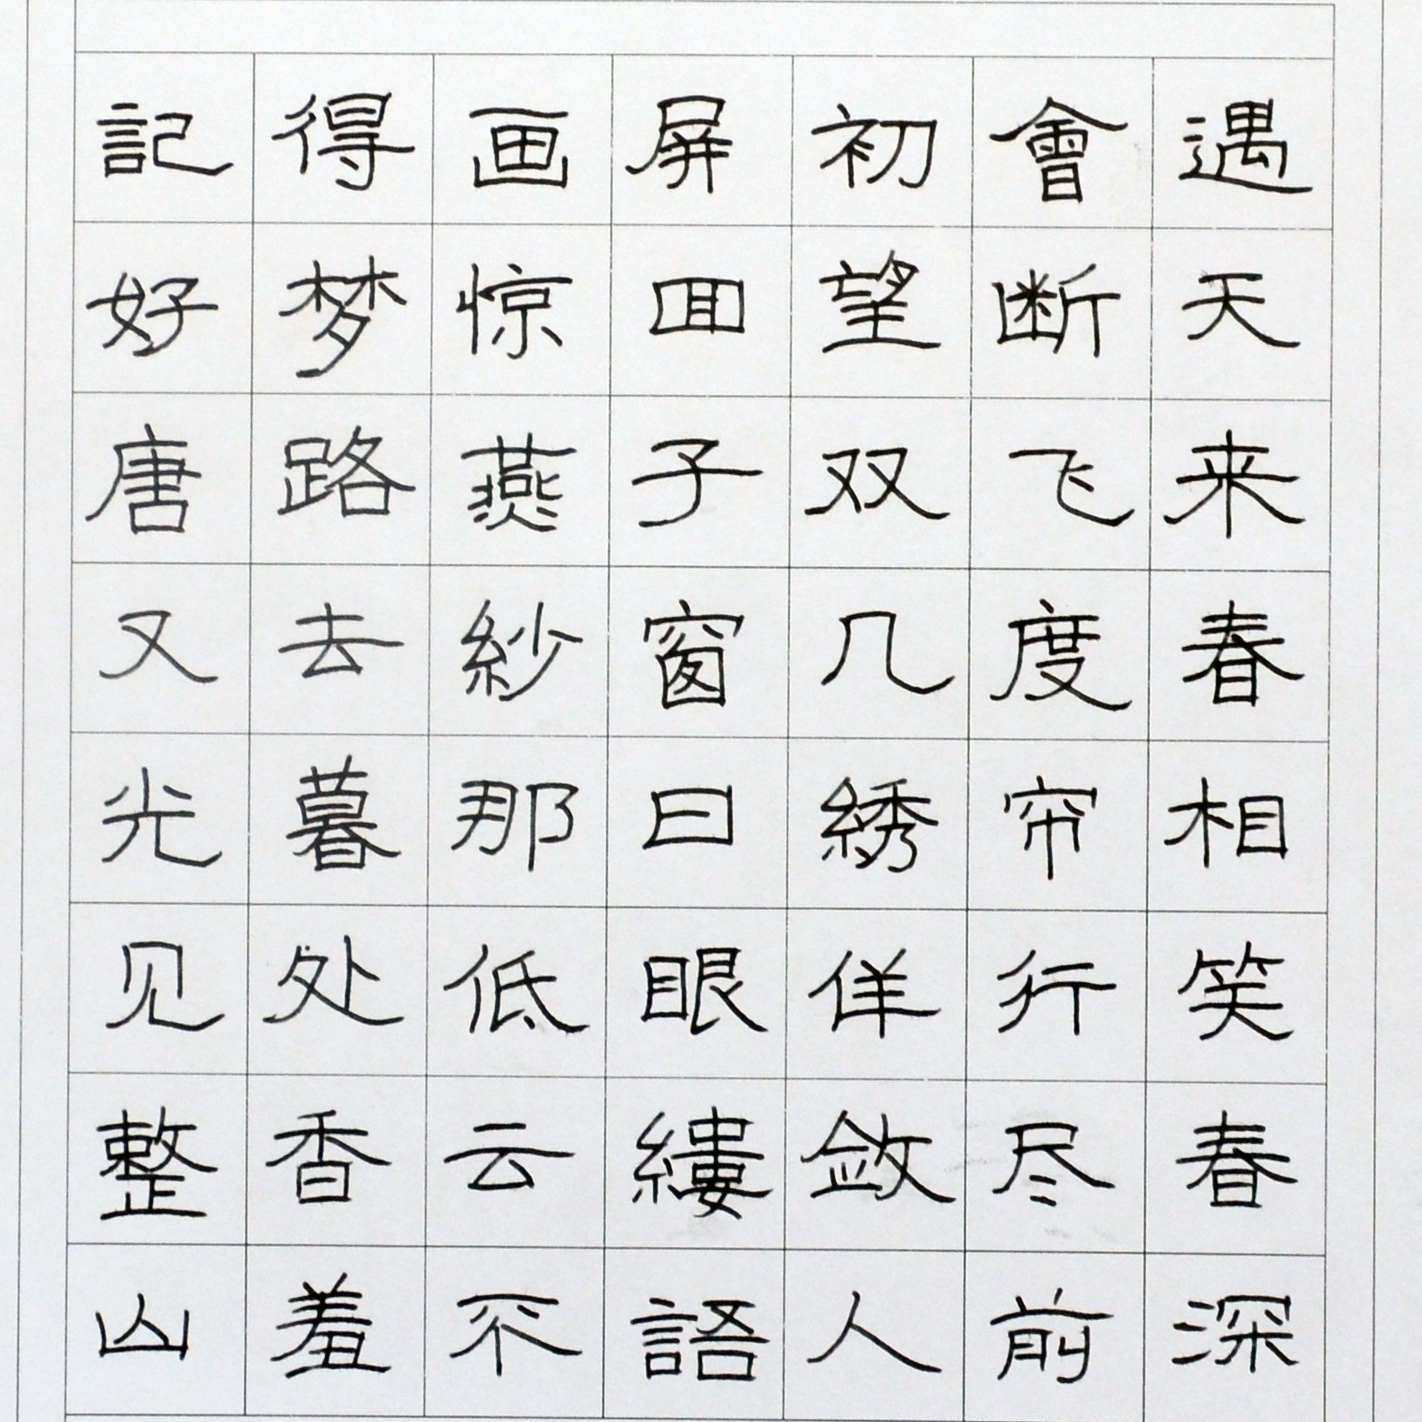 記得画屏初會遇
好梦惊囬望断天
唐路燕子双飞来
又去紗窗几度春
光暮那日綉帘相
见处低眼佯行笑
整香云縷敛尽春
山羞不語人前深